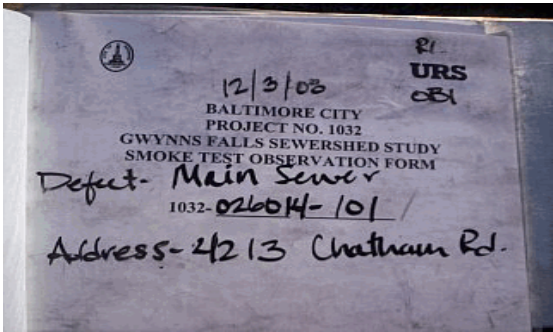 R1
URS
OB1
12/3/03
BALTIMORE CITY
PROJECT NO. 1032
GWYNNS FALLS SEWERSHED STUDY
SMOKE TEST OBSERVATION FORM
Defect- Main Sewer
1032-026014-101
Address- 4213 Chatham Rd.